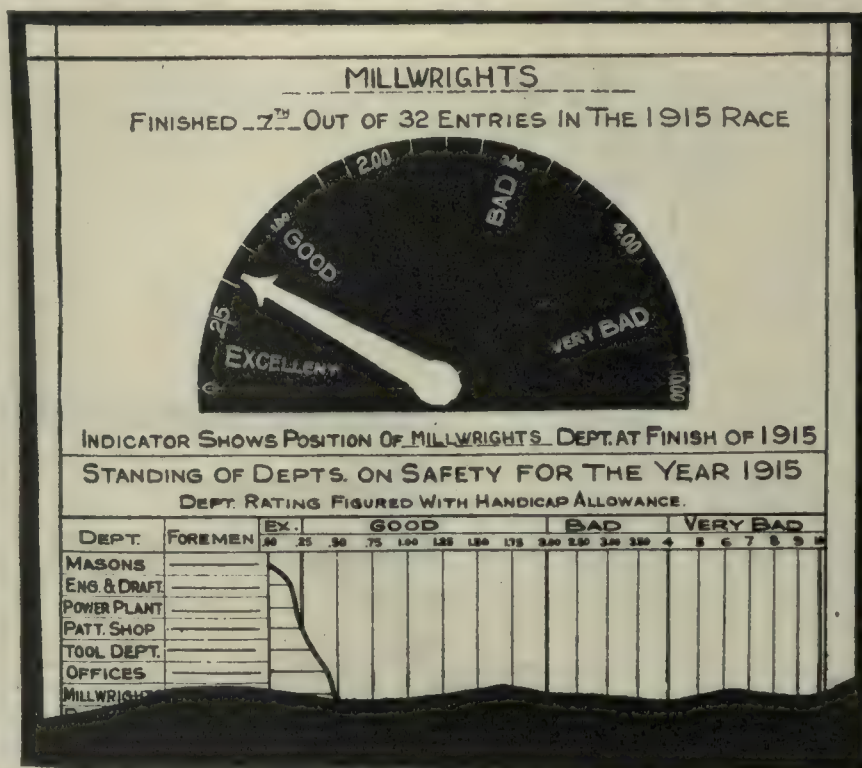 MILLWRIGHTS
FINISHED 7TH OUT OF 32 ENTRIES IN THE 1915 RACE
0 .25 1.00 2.00 3.00 4.00 10.00
EXCELLENT GOOD BAD VERY BAD
INDICATOR SHOWS POSITION OF MILLWRIGHTS DEPT. AT FINISH OF 1915
STANDING OF DEPTS. ON SAFETY FOR THE YEAR 1915
DEPT. RATING FIGURED WITH HANDICAP ALLOWANCE.
DEPT. FOREMEN EX. GOOD BAD VERY BAD
.00 .25 .50 .75 1.00 1.25 1.50 1.75 2.50 3.00 3.50 4 5 6 7 8 9 10
MASONS
ENG. & DRAFT.
POWER PLANT
PATT. SHOP
TOOL DEPT.
OFFICES